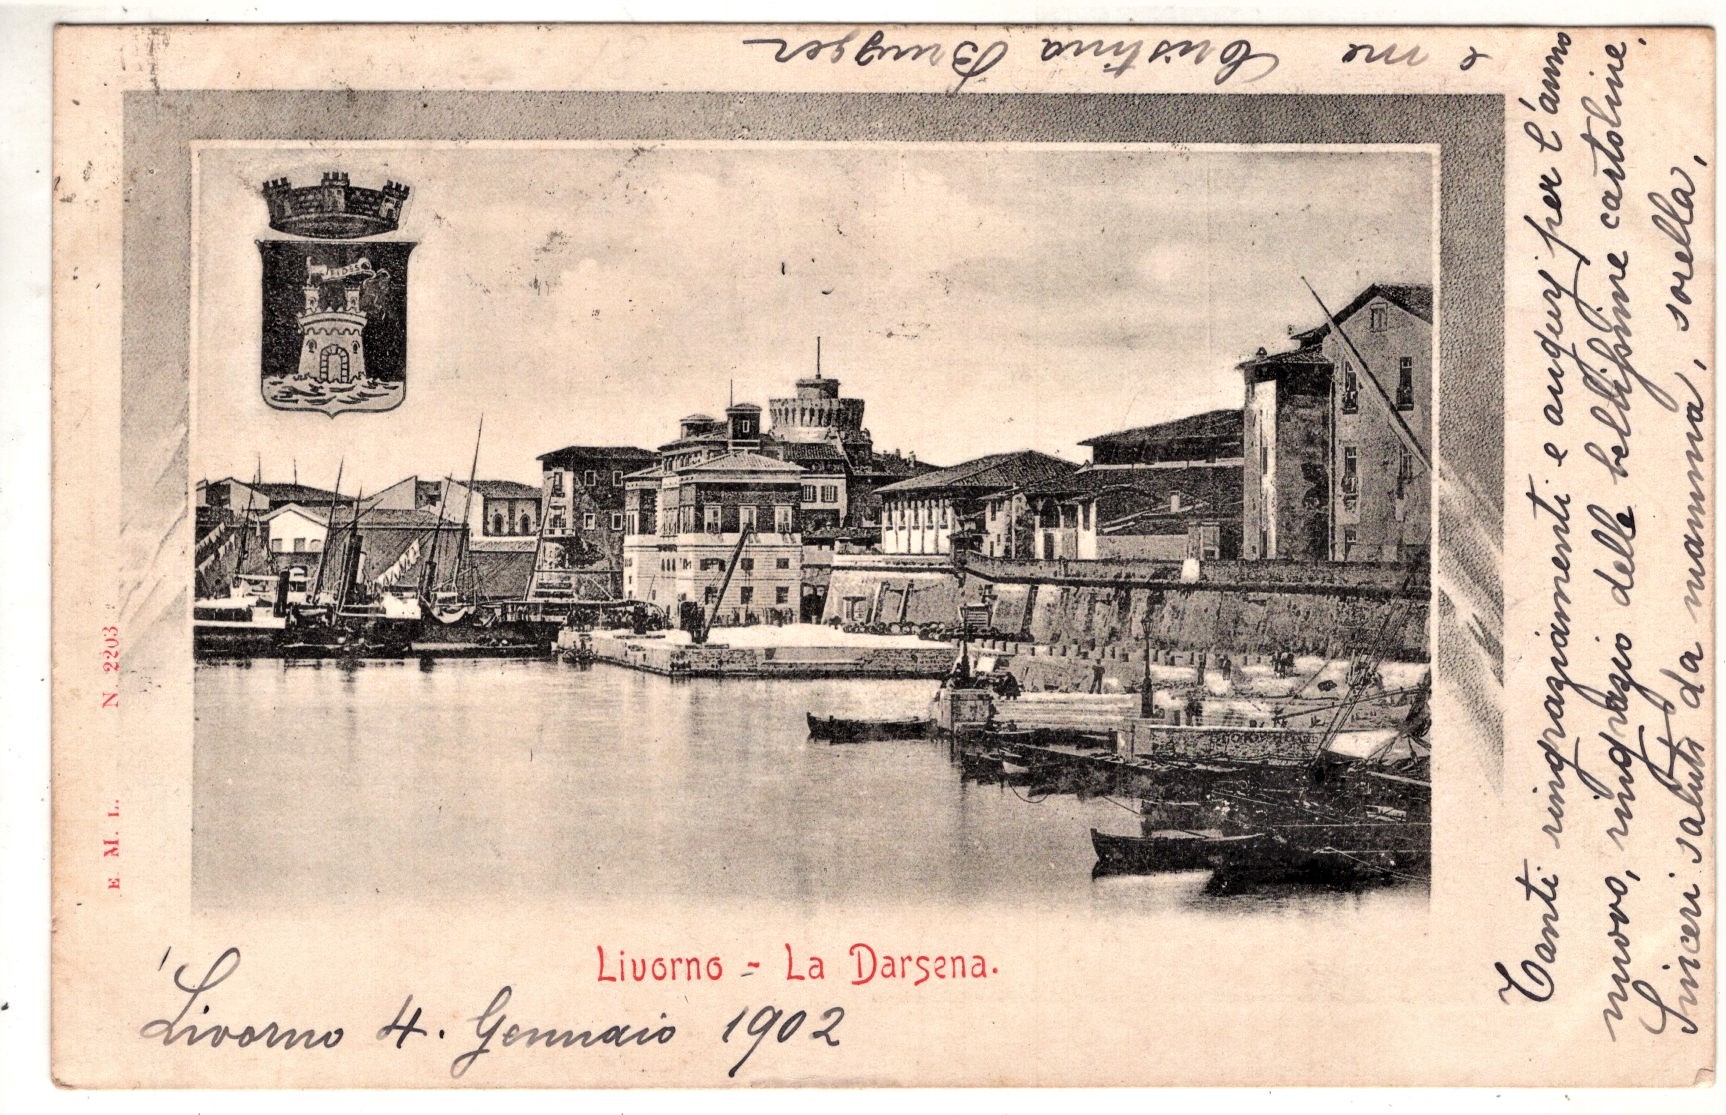 Livorno - La Darsena.
Livorno 4. Gennaio 1902
Tanti ringraziamenti e augurj per l'anno
nuovo, ringrazio delle bellissime cartoline.
Sinceri saluti da mamma, sorella,
e me Cristina Brugger
E. M. L. N. 2203
FIDES